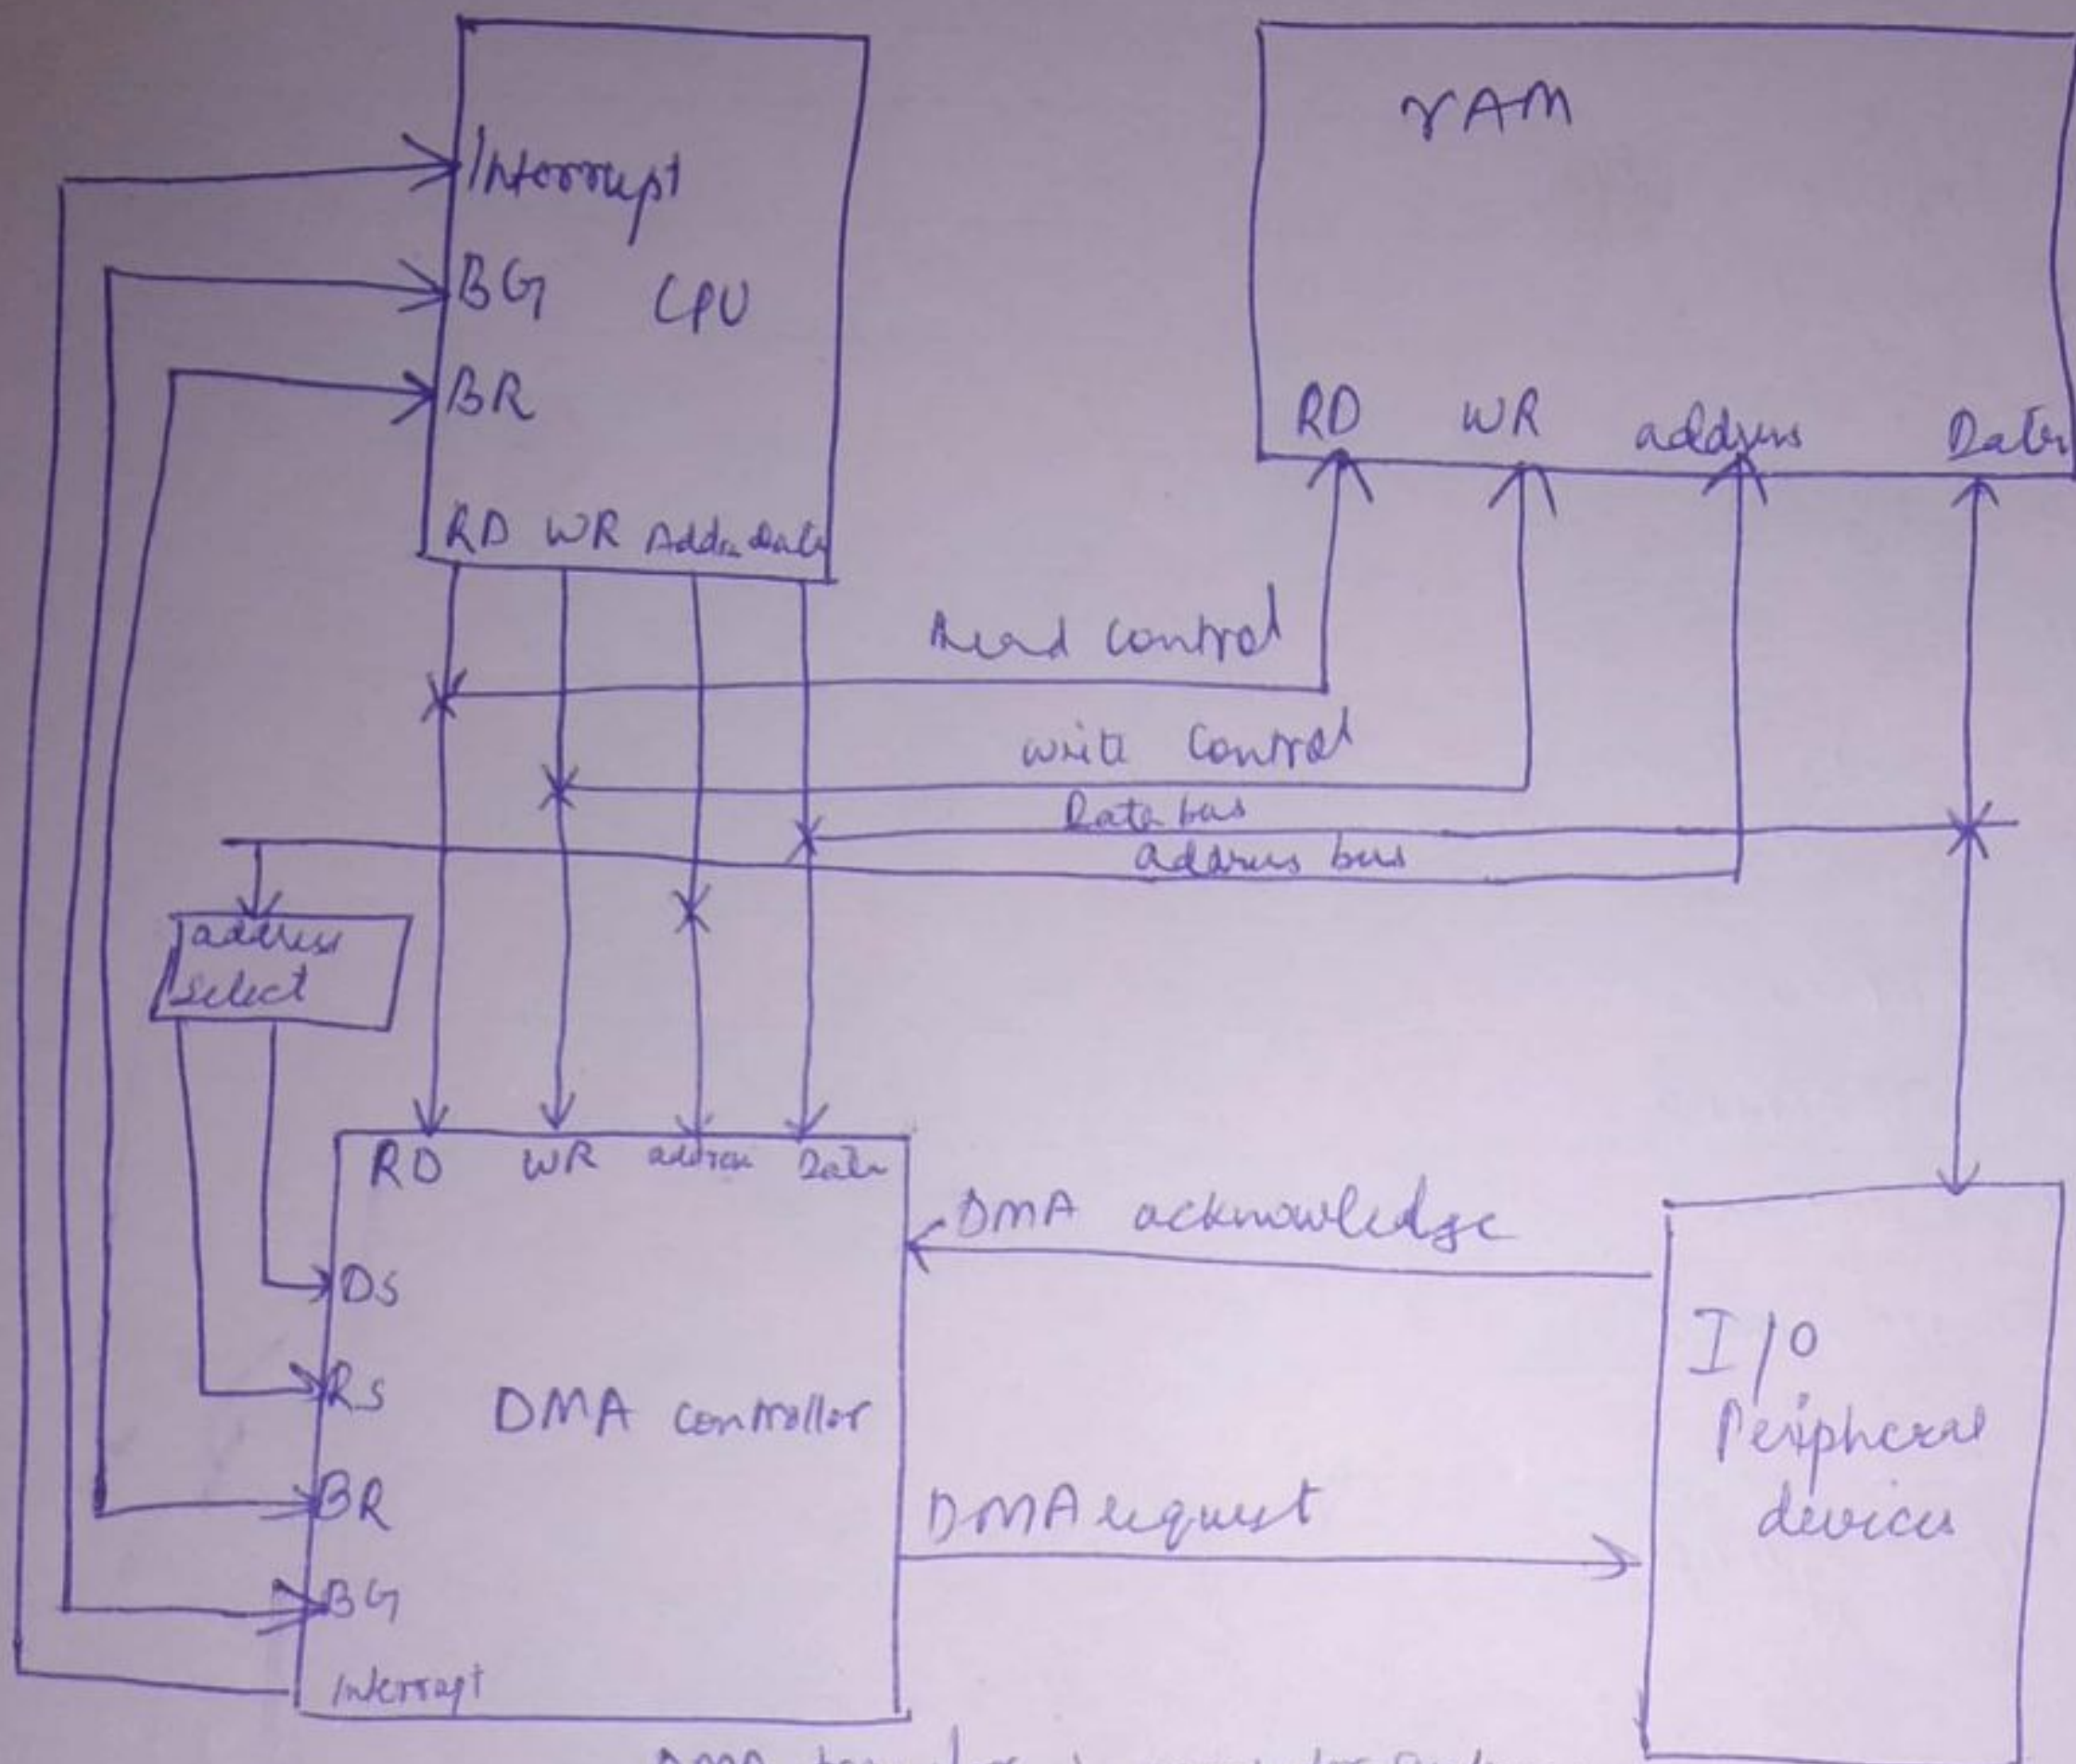 Interrupt
BG CPU
BR
RD WR Data
rAM
RD WR address Data
Read Control
write Control
Data bus
address bus
address
select
RD WR address Data
DS
RS
DMA controller
BR
BG
Interrupt
DMA acknowledge
DMA request
I/O
Peripheral
devices
DMA